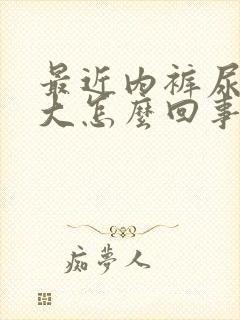 最近内裤尿
大怎麼回事
痴夢人